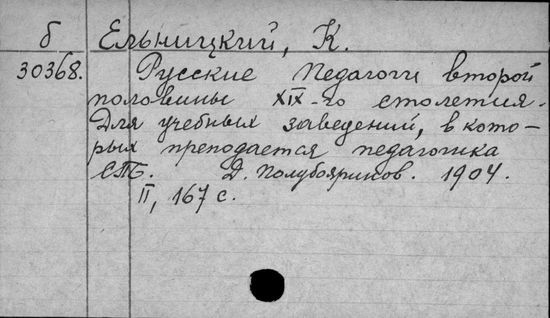 б Ельницкий, К.
30368. Русские педагоги второй
половины XIX-го столетия.
Для учебных заведений, в кото-
рых преподается педагогика
СПБ. Д. Полубояринов. 1904.
II, 167 с.